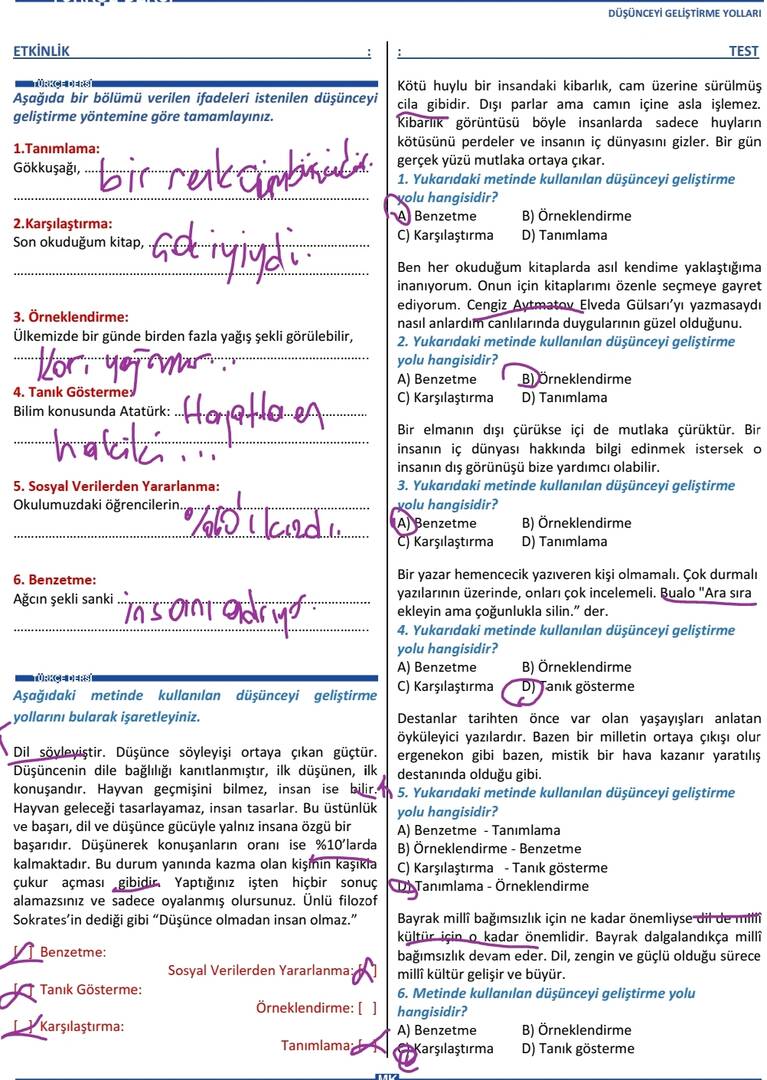 DÜŞÜNCEYİ GELİŞTİRME YOLLARI
ETKİNLİK :
TÜRKÇE DERSİ
Aşağıda bir bölümü verilen ifadeleri istenilen düşünceyi
geliştirme yöntemine göre tamamlayınız.
1.Tanımlama:
Gökkuşağı, bir renk cümbüşüdür.
2.Karşılaştırma:
Son okuduğum kitap, çok iyiydi.
3. Örneklendirme:
Ülkemizde bir günde birden fazla yağış şekli görülebilir,
Kar, yağmur...
4. Tanık Gösterme:
Bilim konusunda Atatürk: Hayatta en
hakiki ...
5. Sosyal Verilerden Yararlanma:
Okulumuzdaki öğrencilerin
%60 ı kızdı.
6. Benzetme:
Ağcın şekli sanki insanı andırıyor.
TÜRKÇE DERSİ
Aşağıdaki metinde kullanılan düşünceyi geliştirme
yollarını bularak işaretleyiniz.
Dil söyleyiştir. Düşünce söyleyişi ortaya çıkan güçtür.
Düşüncenin dile bağlılığı kanıtlanmıştır, ilk düşünen, ilk
konuşandır. Hayvan geçmişini bilmez, insan ise bilir.
Hayvan geleceği tasarlayamaz, insan tasarlar. Bu üstünlük
ve başarı, dil ve düşünce gücüyle yalnız insana özgü bir
başarıdır. Düşünerek konuşanların oranı ise %10’larda
kalmaktadır. Bu durum yanında kazma olan kişinin kaşıkla
çukur açması gibidir. Yaptığınız işten hiçbir sonuç
alamazsınız ve sadece oyalanmış olursunuz. Ünlü filozof
Sokrates’in dediği gibi “Düşünce olmadan insan olmaz.”
[ ] Benzetme:
Sosyal Verilerden Yararlanma: [ ]
[ ] Tanık Gösterme:
Örneklendirme: [ ]
[ ] Karşılaştırma:
Tanımlama: [ ]
: TEST
Kötü huylu bir insandaki kibarlık, cam üzerine sürülmüş
cila gibidir. Dışı parlar ama camın içine asla işlemez.
Kibarlık görüntüsü böyle insanlarda sadece huyların
kötüsünü perdeler ve insanın iç dünyasını gizler. Bir gün
gerçek yüzü mutlaka ortaya çıkar.
1. Yukarıdaki metinde kullanılan düşünceyi geliştirme
yolu hangisidir?
A) Benzetme B) Örneklendirme
C) Karşılaştırma D) Tanımlama
Ben her okuduğum kitaplarda asıl kendime yaklaştığıma
inanıyorum. Onun için kitaplarımı özenle seçmeye gayret
ediyorum. Cengiz Aytmatov Elveda Gülsarı’yı yazmasaydı
nasıl anlardım canlılarında duygularının güzel olduğunu.
2. Yukarıdaki metinde kullanılan düşünceyi geliştirme
yolu hangisidir?
A) Benzetme B) Örneklendirme
C) Karşılaştırma D) Tanımlama
Bir elmanın dışı çürükse içi de mutlaka çürüktür. Bir
insanın iç dünyası hakkında bilgi edinmek istersek o
insanın dış görünüşü bize yardımcı olabilir.
3. Yukarıdaki metinde kullanılan düşünceyi geliştirme
yolu hangisidir?
A) Benzetme B) Örneklendirme
C) Karşılaştırma D) Tanımlama
Bir yazar hemencecik yazıveren kişi olmamalı. Çok durmalı
yazılarının üzerinde, onları çok incelemeli. Bualo "Ara sıra
ekleyin ama çoğunlukla silin.” der.
4. Yukarıdaki metinde kullanılan düşünceyi geliştirme
yolu hangisidir?
A) Benzetme B) Örneklendirme
C) Karşılaştırma D) Tanık gösterme
Destanlar tarihten önce var olan yaşayışları anlatan
öyküleyici yazılardır. Bazen bir milletin ortaya çıkışı olur
ergenekon gibi bazen, mistik bir hava kazanır yaratılış
destanında olduğu gibi.
5. Yukarıdaki metinde kullanılan düşünceyi geliştirme
yolu hangisidir?
A) Benzetme - Tanımlama
B) Örneklendirme - Benzetme
C) Karşılaştırma - Tanık gösterme
D) Tanımlama - Örneklendirme
Bayrak millî bağımsızlık için ne kadar önemliyse dil de millî
kültür için o kadar önemlidir. Bayrak dalgalandıkça millî
bağımsızlık devam eder. Dil, zengin ve güçlü olduğu sürece
millî kültür gelişir ve büyür.
6. Metinde kullanılan düşünceyi geliştirme yolu
hangisidir?
A) Benzetme B) Örneklendirme
C) Karşılaştırma D) Tanık gösterme
MK